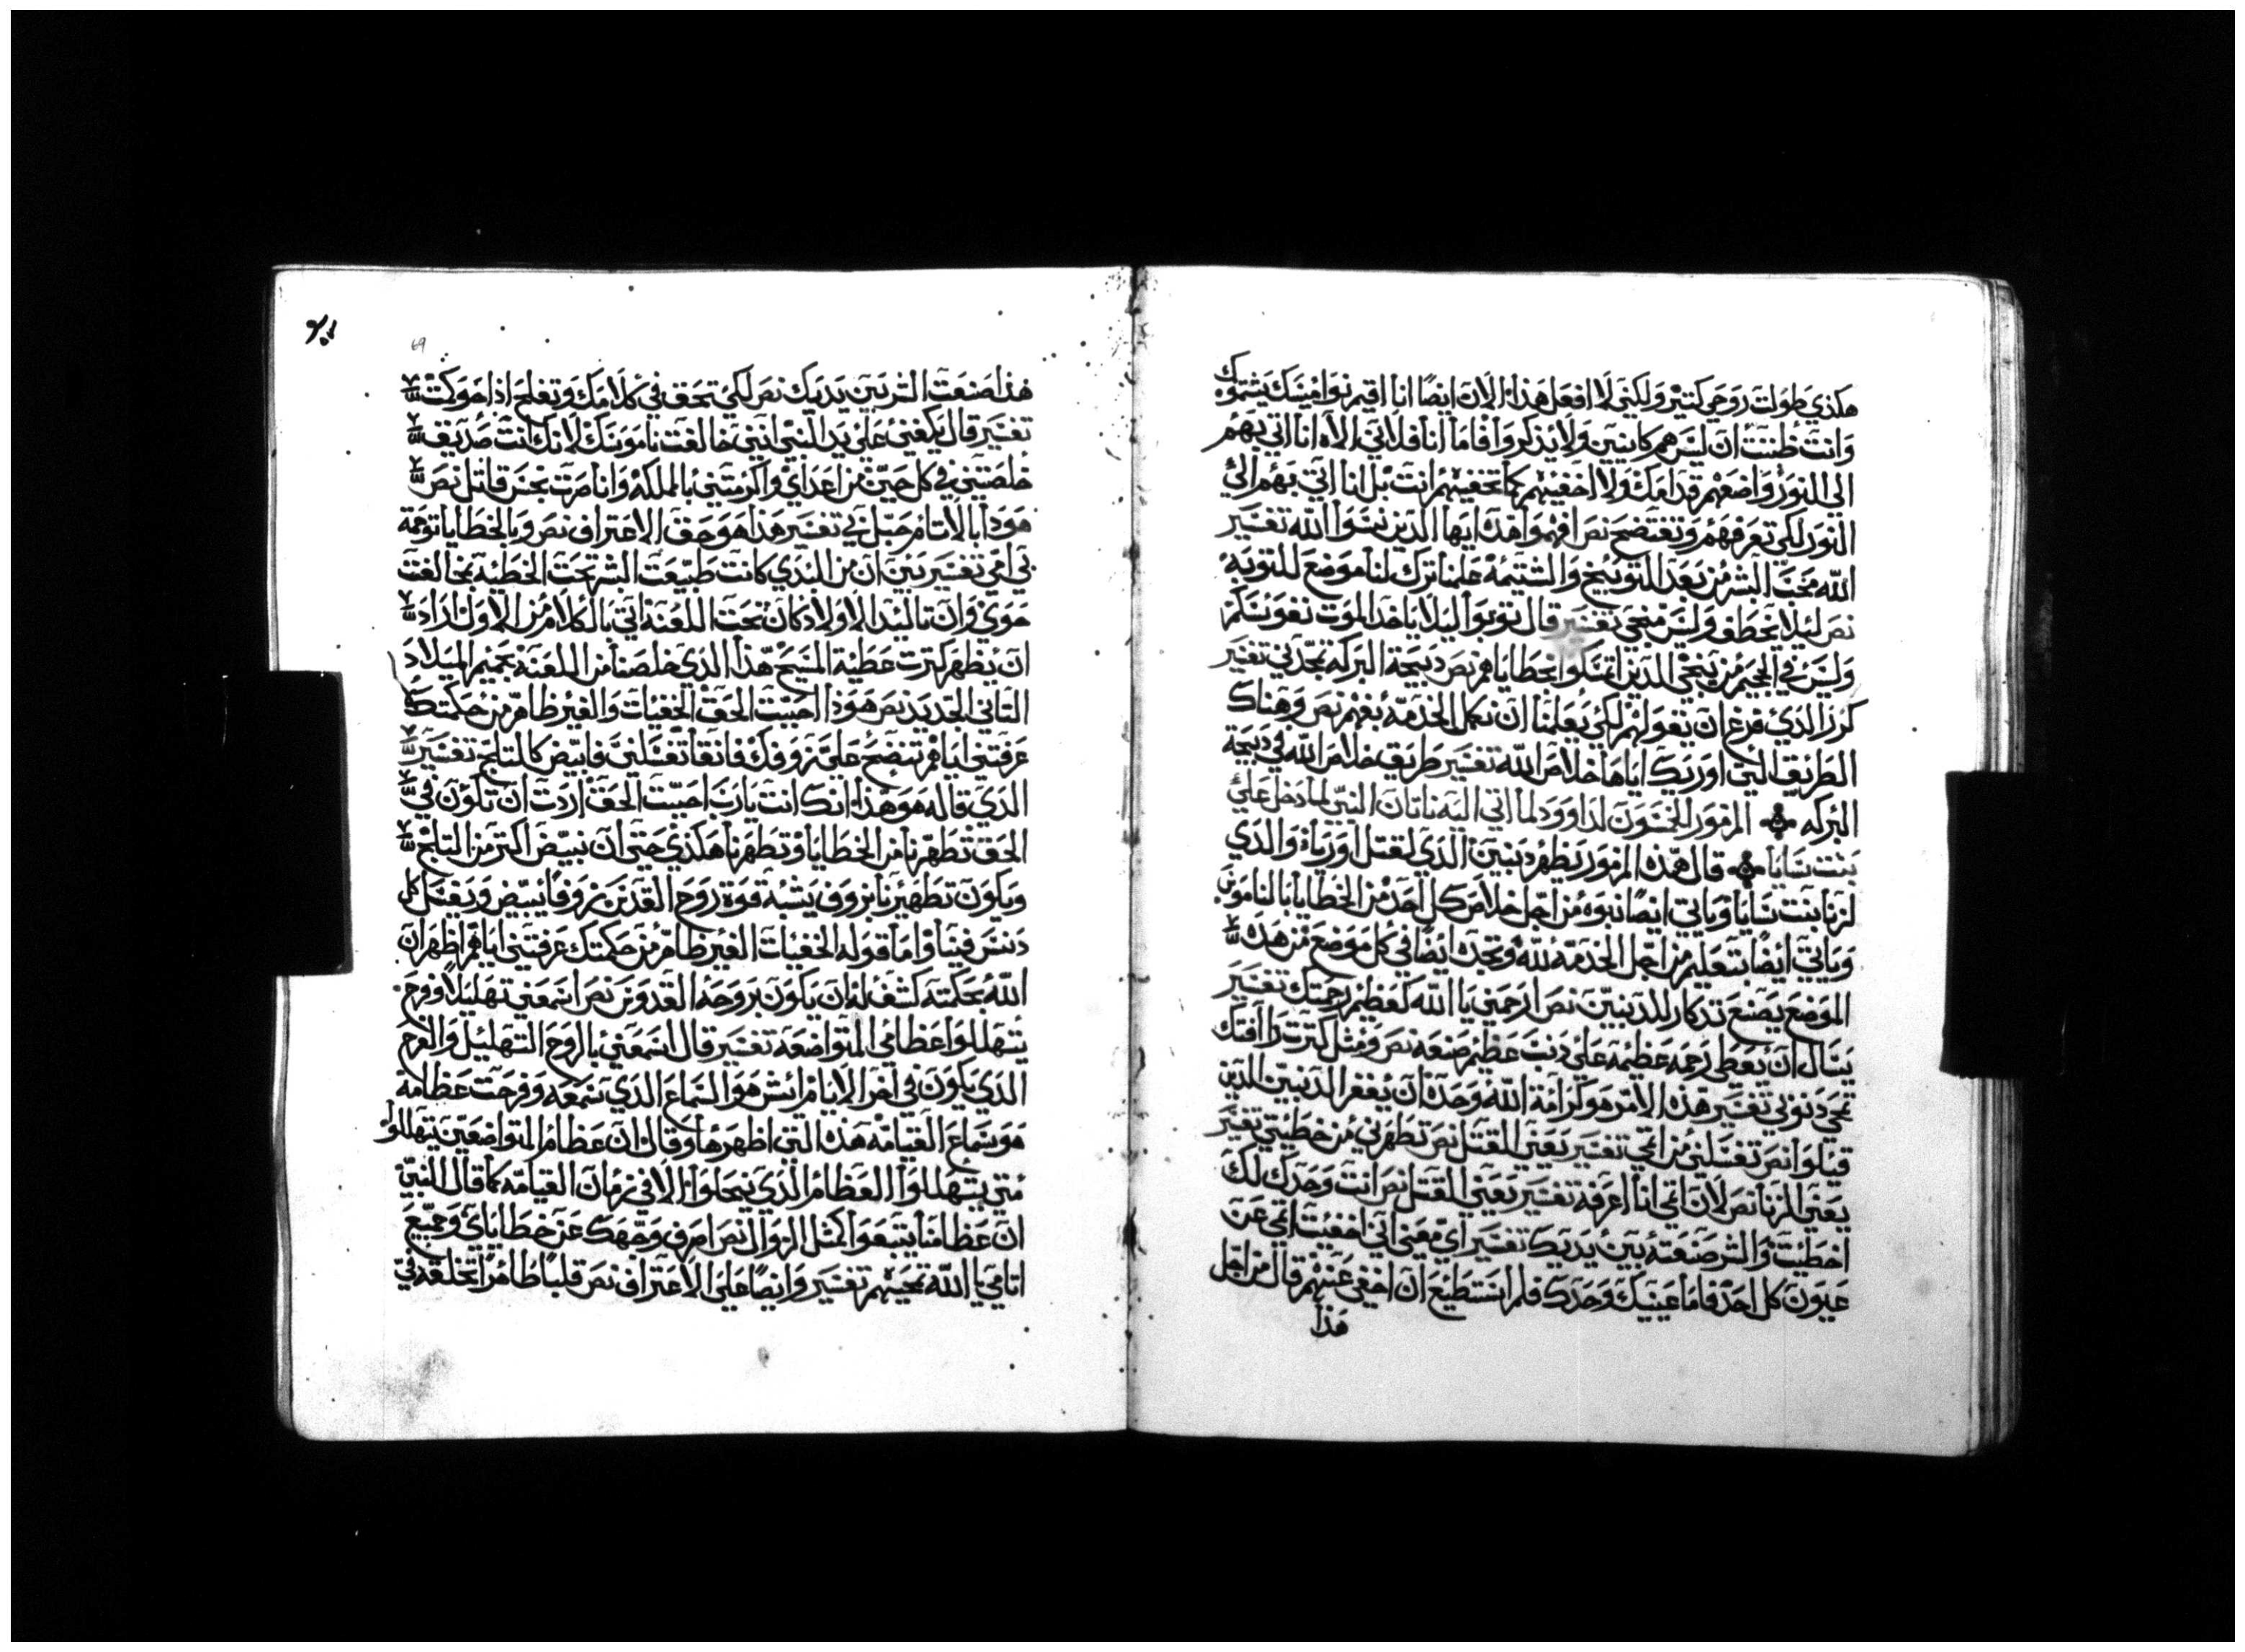 هكذي طولت روحي كتير ولكني لا افعل هذا الان ايضا انا اقيم نواميسك يشتموك
وانت ظننت ان ليس هم كاينين ولا يذكروا فاما انا فلاني الاه انا اتي بهم
الى النور واضعهم قدامك ولا اخفيهم كما تخفيهم انت بل انا اتي بهم الي
النور لكي تعرفهم وتفتضح نص افهموا هذه ايها الذين نسوا الله تفسير
الله محب البشر من بعد التوبيخ والشتيمه علمنا ترك لنا موضع للتوبه
نص ليلا يخطف وليس منجي تفسير قال توبوا ليلا ياخد الموت نفوسكم
وليس في الجحيم من ينجي الدين اتمسكوا بخطاياهم نص دبيحة البركه تمجدني تفسير
كرز الدي فرغ ان يقولهم لكي يعلمنا ان نكمل الخدمه بفهم نص وهناك
الطريق التي اوريك اياها خلاص الله تفسير طريق خلاص الله في دبيحة
البركه المزمور الخمسون لداوود لما اتي اليه ناتان النبي لما دخل علي
بتت سابا قال هده المزمور يظهر دنبين الدي لقتل اورياء والدي
لزنا بنت سابا وياتي ايضا نبوه من اجل خلاص كل احد من الخطايا بالناموس
وياتي ايضا بتعليم من اجل الخدمه لله وتجده ايضا في كل موضع من هده
الموضع يصنع تدكار للدنبين نص ارحمني يا الله كعظيم رحمتك تفسير
يسال ان يعطي رحمه عظيمه علي دنب عظيم صنعه نص ومتل كترت رافتك
تمحي دنوبي تفسير هده الامر هو كرامة الله وحده ان يغفر الدنبين للدين
قبلوا نص تغسلني من اتمي تفسير يعني القتل نص تطهرني من خطيتي تفسير
يعني الزنا نص لان اتمي انا اعرفه تفسير يعني القتل نص انت وحدك لك
اخطيت والشر صنعته بين يديك تفسير اي معني اني اخفيت اتمي عن
عيون كل احد فاما عينيك وحدك فلم استطيع ان اخفي عنهم قال من اجل
هذا
69
هذا صنعت الشر بين يديك نص لكي تحق في كلامك وتفلح ادا حوكمت
تفسير قال يكفي علي يد النبي انني خالفت ناموسك لانك انت صديق
خلصتني في كل حين من اعداي واكرمتني بالملكه وانا صرت بخس قاتل نص
هودا بالاتام حبل بي تفسير هذا هو حق الاعتراف نص وبالخطايا توحمة
بي امي تفسير بين ان من البدي كانت طبيعت البشر تحت الخطيه بمخالفت
حوي وان تاليد الاولاد كان تحت اللعنه اتي بالكلام من الاول اراد
ان يظهر كترت عطية المسيح هذا الدي خلصنا من اللعنه بحميم الميلاد
التاني الجديد نص هودا احببت الحق الخفيات والغير ظاهر من حكمتك
عرفتني اياهم تنضح علي بزوفك فانقا تغسلني فابيض كالتلج تفسير
الدي قاله هو هذا انك انت يارب احببت الحق اردت ان تكون في
الحق تطهرنا من الخطايا وتطهرنا هكذي حتي ان نبيض اكتر من التلج
ويكون تطهيرنا بزوف يشبه قوة روح القدس بزوفا يبيض ويغسل كل
دنس فينا واما قوله الخفيات الغير ظاهر من حكمتك عرفتني اياهم اظهر ان
الله بحكمته كشف له ان يكون بروحه القدوس نص اسمعني تهليلا وفرح
يتهللوا عظامي المتواضعه تفسير قال اسمعني بالروح التهليل والفرح
الدي يكون في اخر الايام ايش هو السماع الدي سمعه وفرحت عظامه
هو سماع القيامه هده التي اظهرها وقال ان عظام المتواضعين يتهللوا
متي يتهللوا العظام الدي ينحلوا الا في زمان القيامه كما قال النبي
ان عظامنا ينبعوا كمتل الزوال نص اصرف وجهك عن خطاياي وجميع
اتامي يا الله تمحيهم تفسير وايضا علي الاعتراف نص قلبا طاهرا تخلقه في